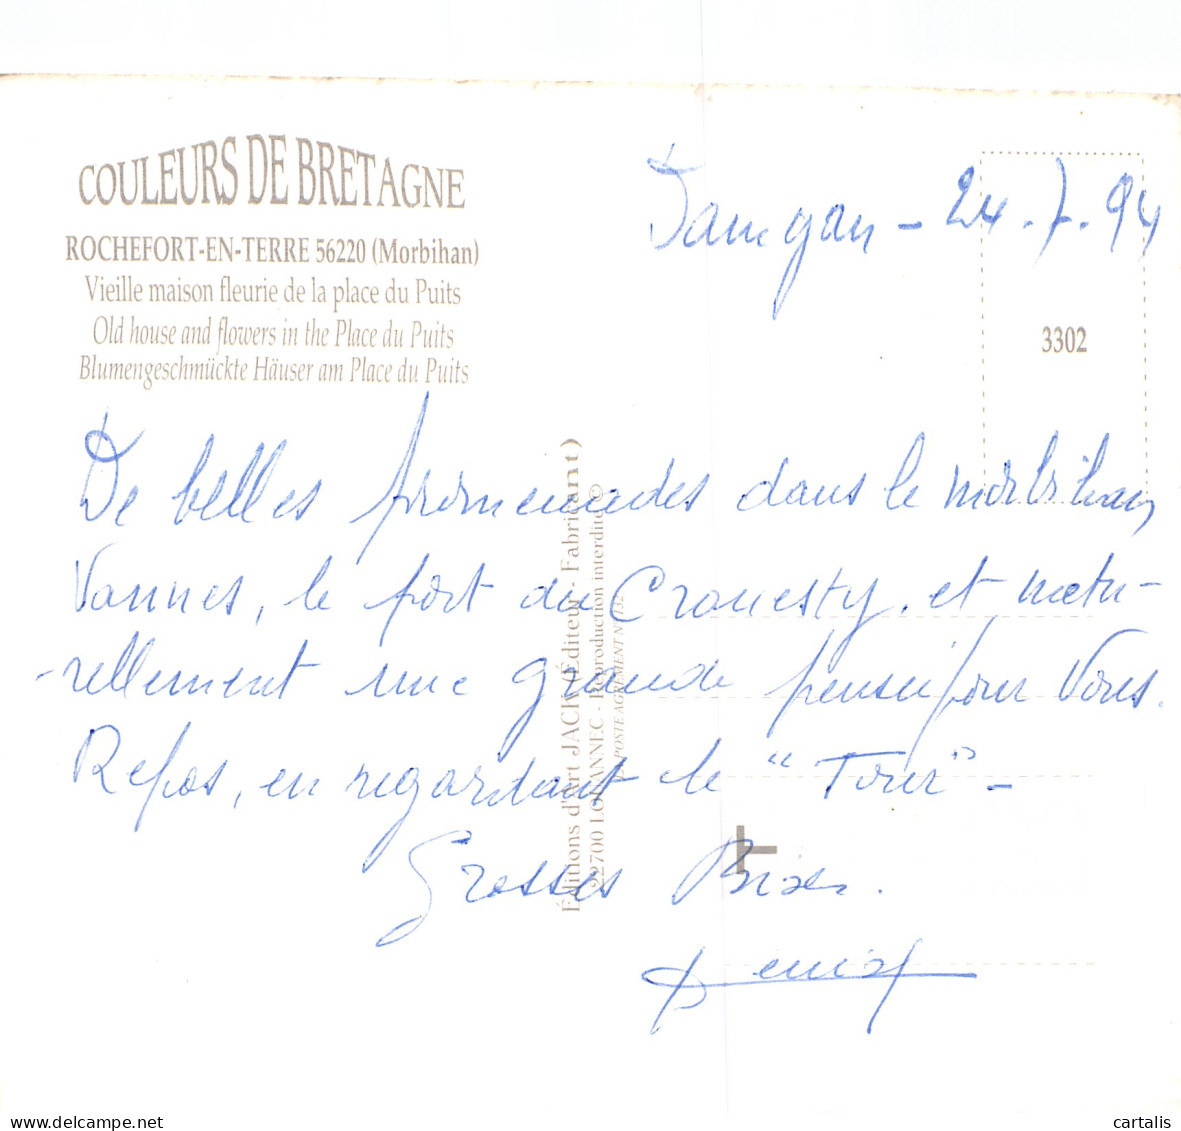 COULEURS DE BRETAGNE
ROCHEFORT-EN-TERRE 56220 (Morbihan)
Vieille maison fleurie de la place du Puits
Old house and flowers in the Place du Puits
Blumengeschmückte Häuser am Place du Puits
Damgan - 24.7.94
3302
De belles promenades dans le morbihan,
Vannes, le port du Crouesty, et natu-
-rellement une grande pensée pour Vous.
Repos, en regardant le "Tour" -
Grosses Bises.
Denis
Éditions d'art JACK (Éditeur - Fabricant)
22700 LOUANNEC - Reproduction interdite ©
POSTE AGREMENT N° 132
delcampe.net
cartalis